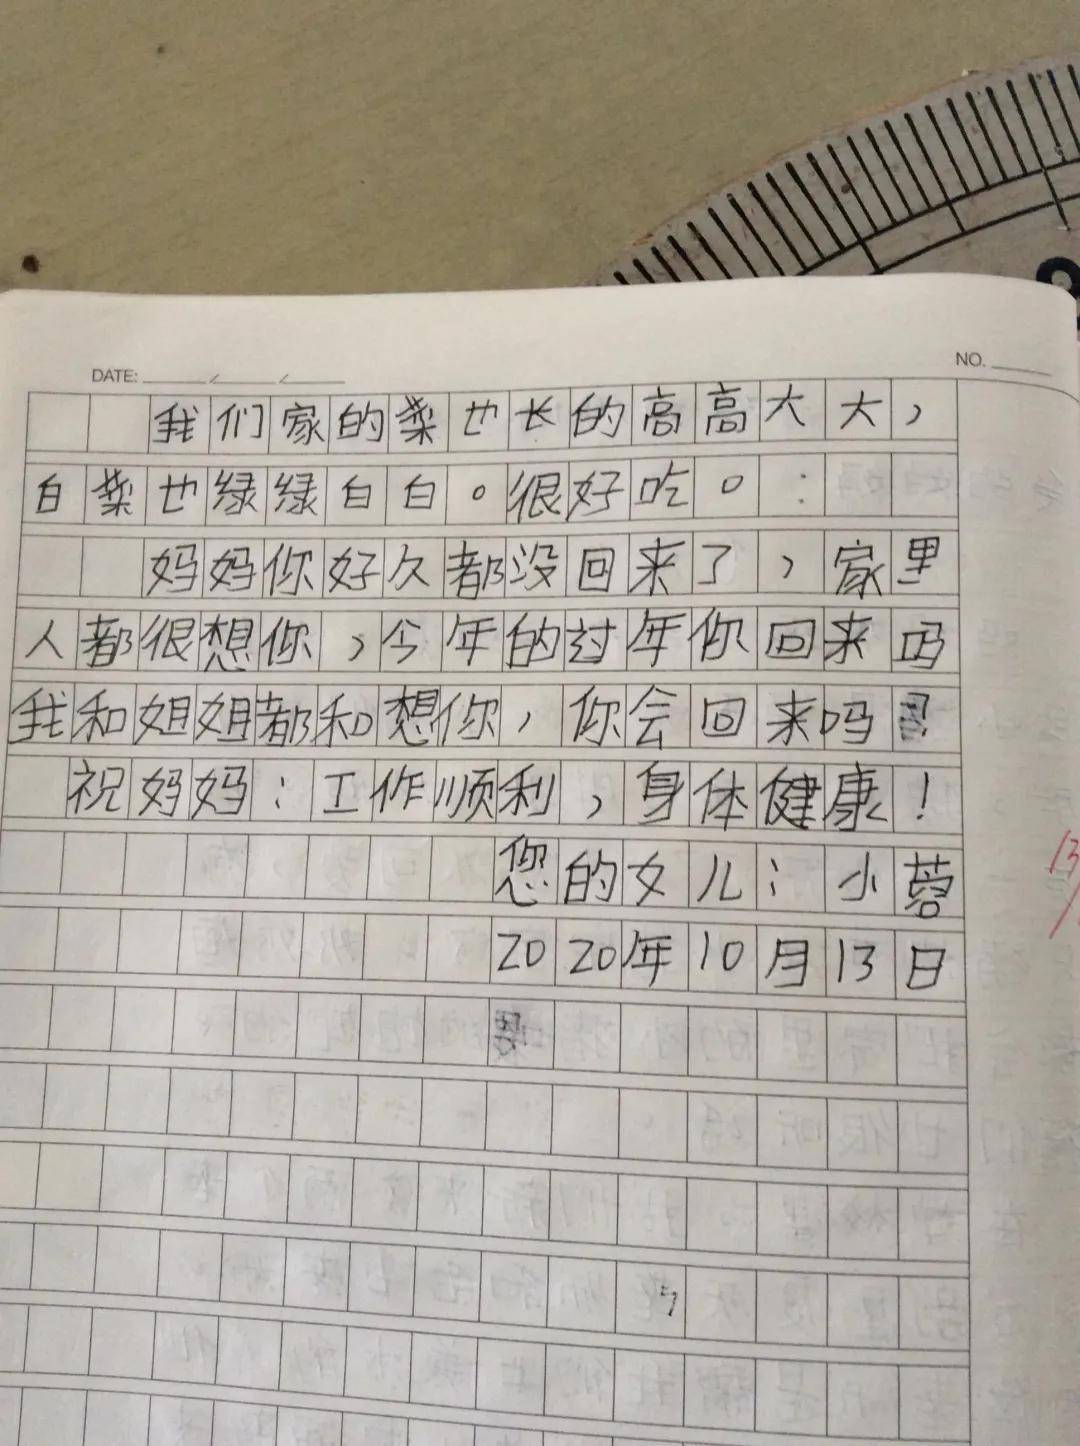 DATE: NO.
我们家的菜也长的高高大大，
白菜也绿绿白白。很好吃。：
妈妈你好久都没回来了，家里
人都很想你，今年的过年你回来吗
我和姐姐都和想你，你会回来吗？
祝妈妈：工作顺利，身体健康！
您的女儿：小蓉
2020年10月13日
13